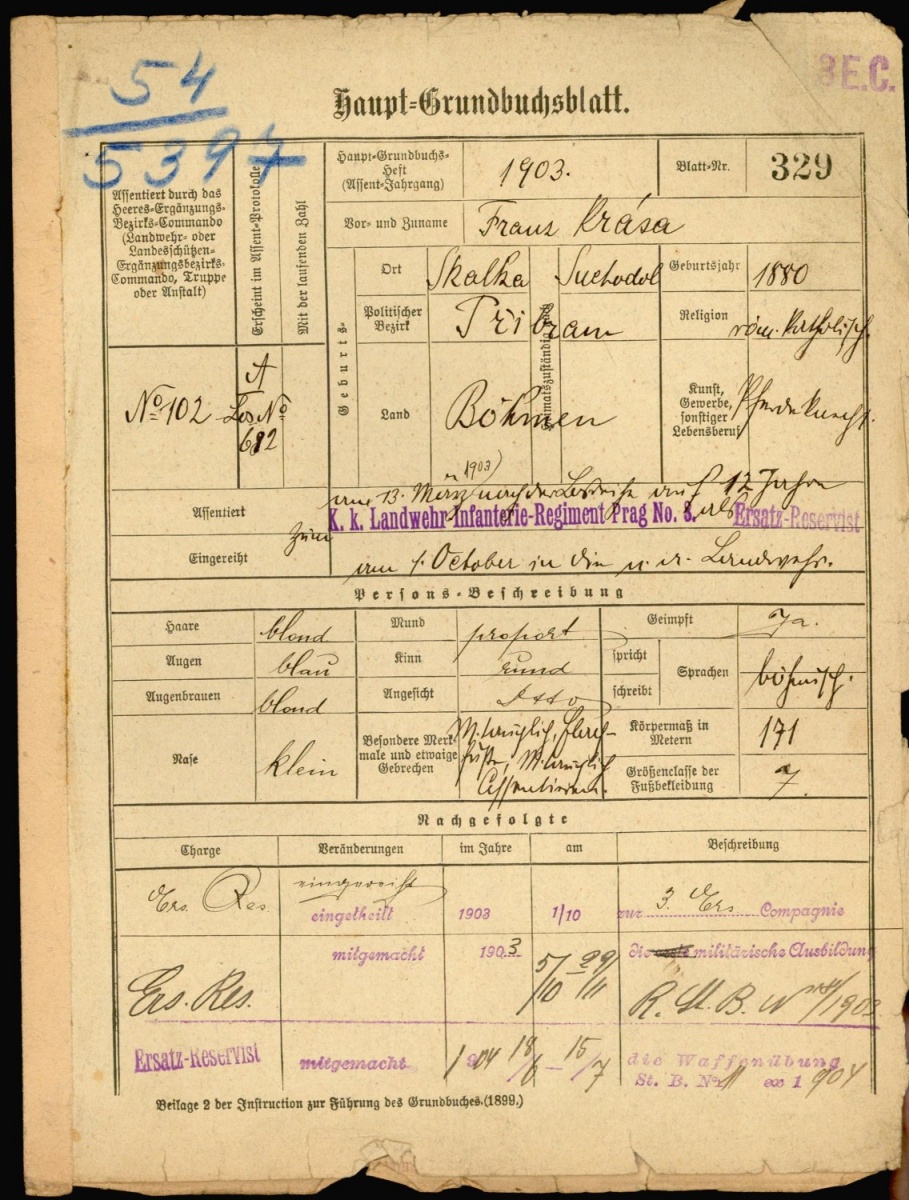 54
5397
BE.C.
Haupt-Grundbuchsblatt.
Assentiert durch das
Heeres-Ergänzungs-
Bezirks-Commando
(Landwehr- oder
Landesschützen-
Ergänzungsbezirks-
Commando, Truppe
oder Anstalt)
Erscheint im Assent-Protokolle
Mit der laufenden Zahl
Haupt-Grundbuchs-
Heft
(Assent-Jahrgang)
1903.
Blatt-Nr.
329
Vor- und Zuname
Franz Krása
Geburts-
Ort
Skalka
Heimatszuständigkeits
Suchodol
Geburtsjahr
1880
Politischer
Bezirk
Přibram
Religion
röm. katholisch.
Land
Böhmen
Kunst,
Gewerbe,
sonstiger
Lebensberuf
Pferdeknecht.
No 102
A
Los No
682
Assentiert
am 13. März 1903 nach der Losreihe auf 12 Jahre
zum K. k. Landwehr-Infanterie-Regiment Prag No. 8. als Ersatz-Reservist
Eingereiht
am 1. October in die Landwehr.
Persons-Beschreibung
Haare
blond
Mund
proport
Geimpft
Ja.
Augen
blau
Kinn
rund
spricht
schreibt
Sprachen
böhmisch.
Augenbrauen
blond
Angesicht
dtto
Nase
klein
Besondere Merk-
male und etwaige
Gebrechen
Körpermaß in
Metern
171
Größenclasse der
Fußbekleidung
7.
Nachgefolgte
Charge
Veränderungen
im Jahre
am
Beschreibung
Ers. Res.
eingereiht
eingetheilt
1903
1/10
zur 3. Ers Compagnie
mitgemacht
1903
5/10 - 29/11
die militärische Ausbildung
Ers. Res.
Ersatz-Reservist
mitgemacht
1904
18/6 - 15/7
die Waffenübung
St. B. No 11 ex 1904
Beilage 2 der Instruction zur Führung des Grundbuches (1899.)